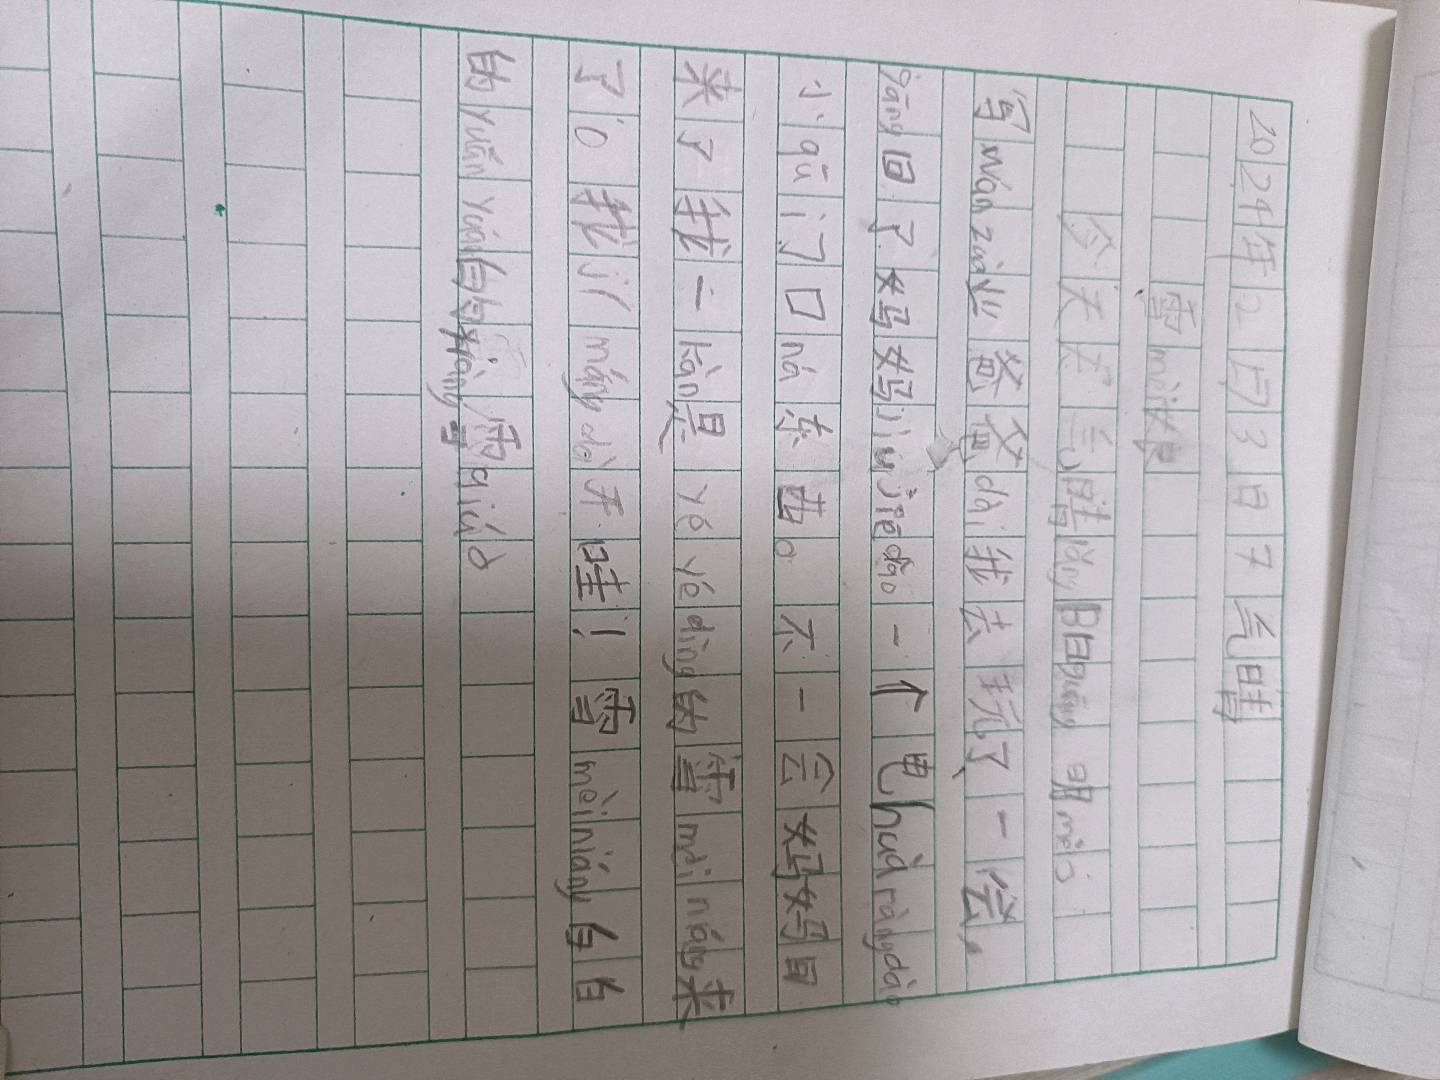 2024年2月3日 天气晴
雪mèi娘
今天天气晴lǎng阳guāng明mèi。
写wán zuò业爸爸dài我去玩了一会，
gāng回了妈妈jiù jiē dào一个电huà ràng dào
小qū门口ná东西。不一会妈妈回
来了我一kàn是yé yé dìng的雪mèi niáng来
了。我jí máng dǎ开哇！雪mèi niáng白白
的yuán yuán的xiàng雪qiú。